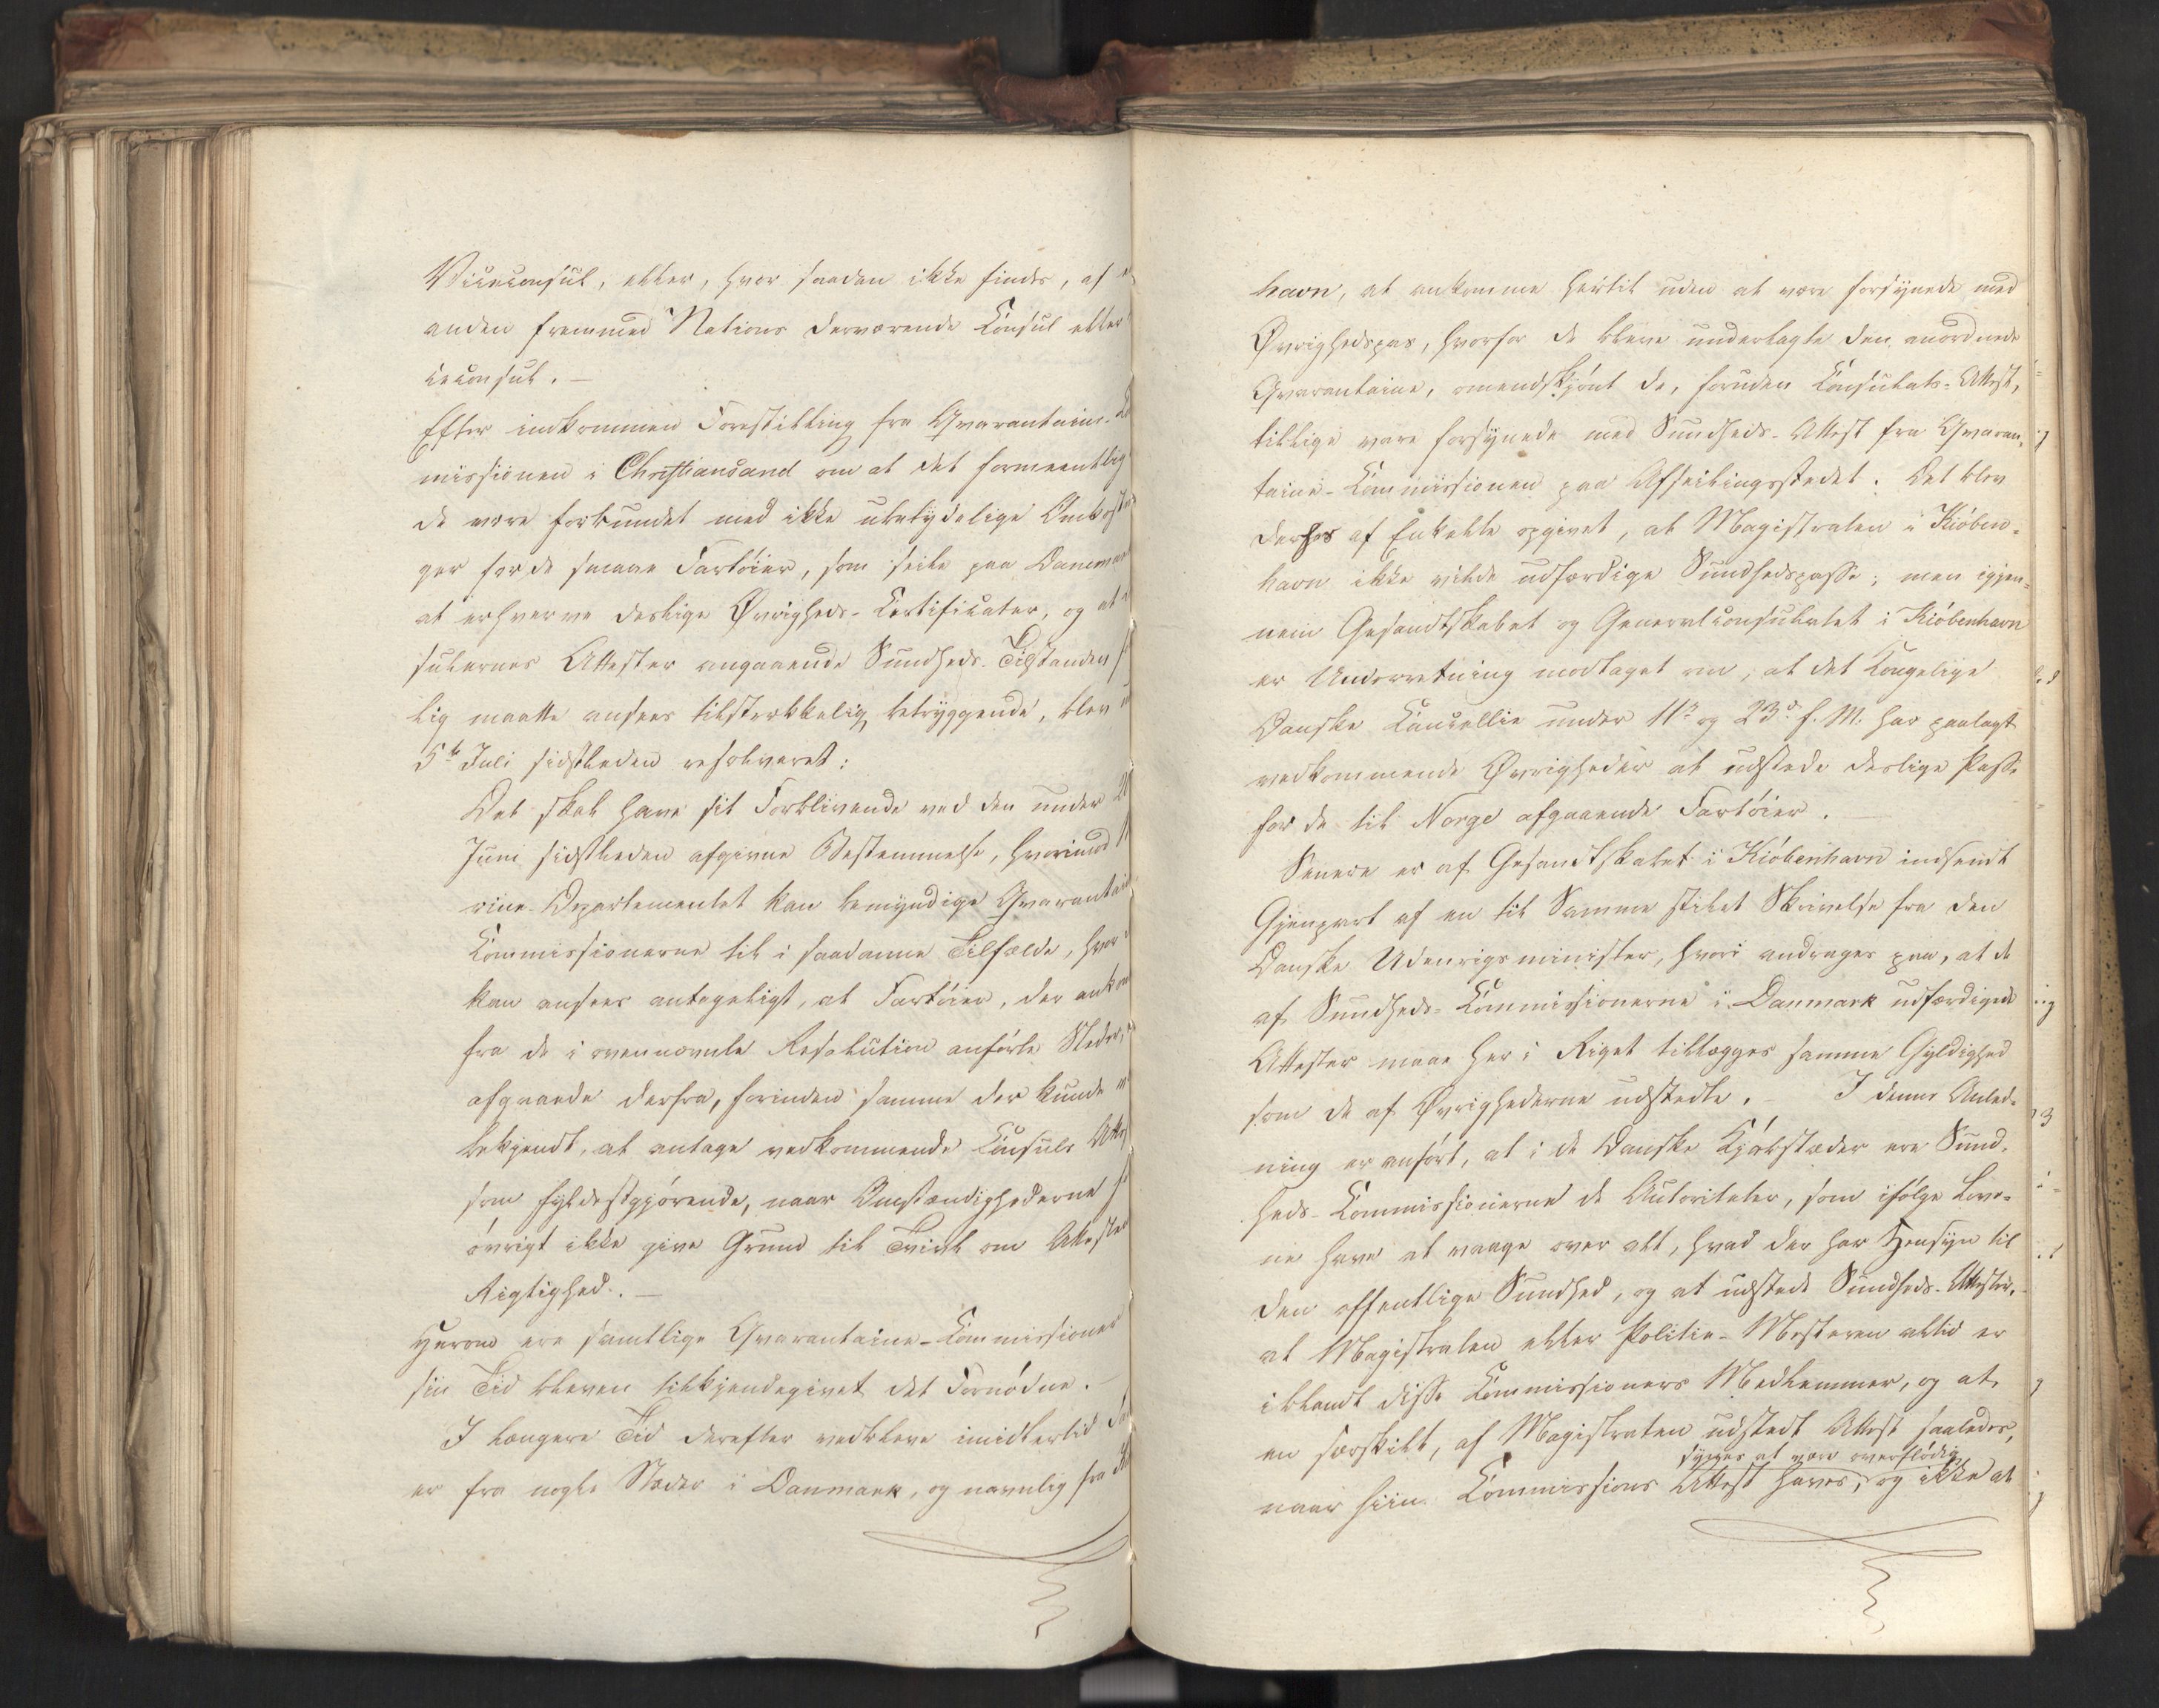 Viceconsul, eller, hvor saadan ikke findes, af
anden fremmed Nations derværende Consul eller
iceconsul. —
Efter indkommen Forestilling fra Qvarantaine-
missionen i Christiansand om at det formeentlig
de være forbundet med ikke ubetydelige Omkost
ger for de smaae Fartöier, som seile paa Danmar
at erhverve deslige Øvrigheds-Certificater, og at
sulernes Attester angaaende Sundheds-Tilstanden
lig maatte ansees tilstrækkelig betryggende, blev
5te Juli sidstleden resolveret:
Det skal have sit Forblivende ved den under
Juni sidstleden afgivne Bestemmelse, hvorimod
rine-Departementet kan bemyndige Qvarantai
Commissionerne til i saadanne Tilfælde, hvor
kan ansees antageligt, at Fartöier, der ankom
fra de i ovennævnte Resolution anförte Steder,
afgaaede derfra, forinden samme der kunde
bekjendt, at antage vedkommende Consuls Attes
som fyldestgjörende, naar Omstændighederne
övrigt ikke give Grund til Tvivl om Attesten
Rigtighed. —
Herom ere samtlige Qvarantaine-Commissioner
sin Tid bleven tilkjendegivet det Fornödne. —
I længere Tid derefter vedbleve imidlertid
er fra nogle Stæder i Danmark, og navnlig fra
havn, at ankomme hertil uden at være forsynede med
Øvrighedspas, hvorfor de bleve underlagte den anordnede
Qvarantaine, omendskjönt de, foruden Consulats-Attest,
tillige vare forsynede med Sundheds-Attest fra Qvaran-
taine-Commissionen paa Afseilingsstedet. Det blev
derhos af Enkelte opgivet, at Magistraten i Kiöben-
havn ikke vilde udfærdige Sundhedspasse; men igjen-
nem Gesandtskabet og Generalconsulatet i Kiöbenhavn
er Underretning modtaget om, at det Kongelige
Danske Cancellie under 11te og 23de f. M. har paalagt
vedkommende Øvrigheder at udstede deslige Passe
for de til Norge afgaaende Fartöier. —
Senere er af Gesandtskabet i Kiöbenhavn indsendt
Gjenpart af en til Samme stilet Skrivelse fra den
Danske Udenrigsminister, hvori andrages paa, at de
af Sundheds-Commissionerne i Danmark udfærdigede
Attester maae her i Riget tillægges samme Gyldighed
som de af Øvrighederne udstedte. — I denne Anled-
ning er anfört, at i de Danske Kjöbstæder ere Sund-
heds-Commissionerne de Autoriteter, som ifölge Love-
ne have at vaage over alt, hvad der har Hensyn til
den offentlige Sundhed, og at udstede Sundheds-Attester,
at Magistraten eller Politie-Mesteren altid er
iblandt disse Commissioners Medlemmer, og at
en særskilt, af Magistraten udstedt Attest saaledes,
synes at være overflödig
naar hiin Commissions Attest haves, og ikke at